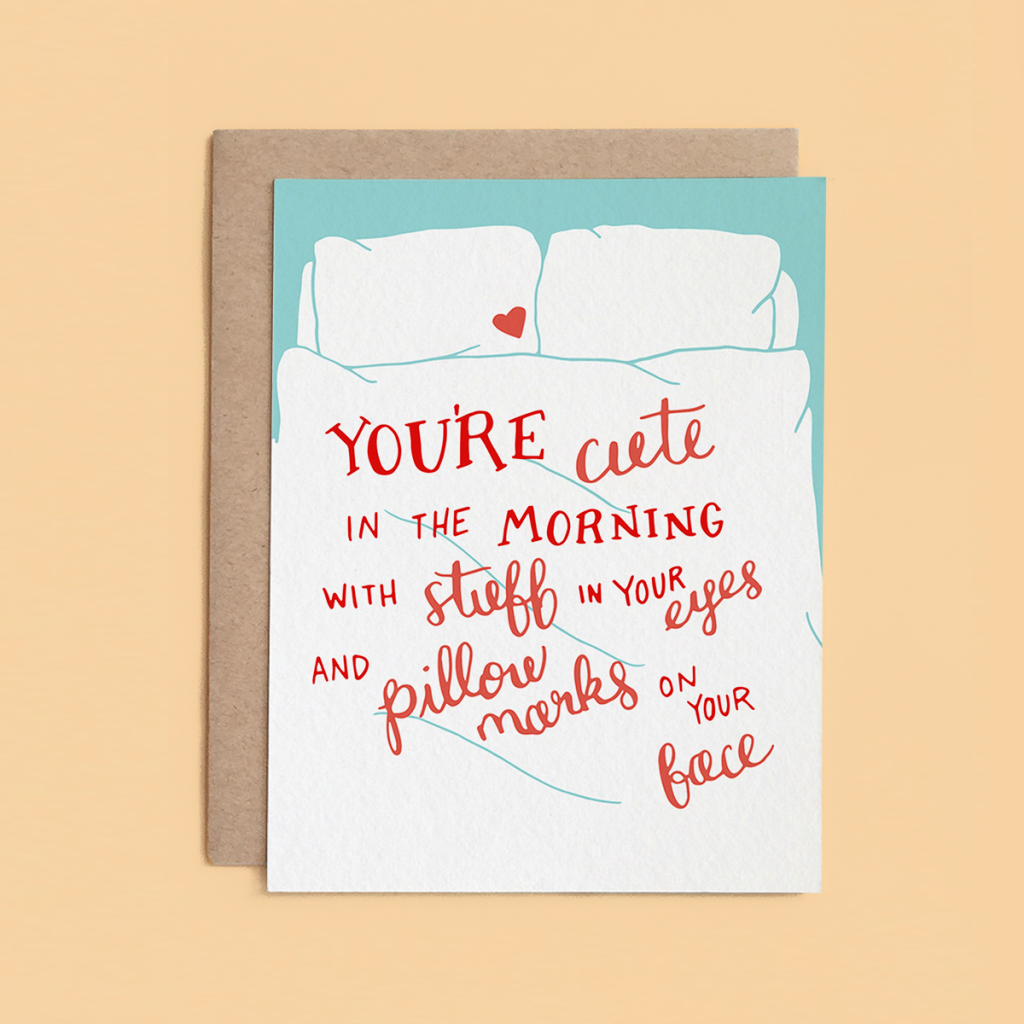 YOU'RE cute
IN THE MORNING
WITH stuff IN YOUR eyes
AND pillow marks ON YOUR
face